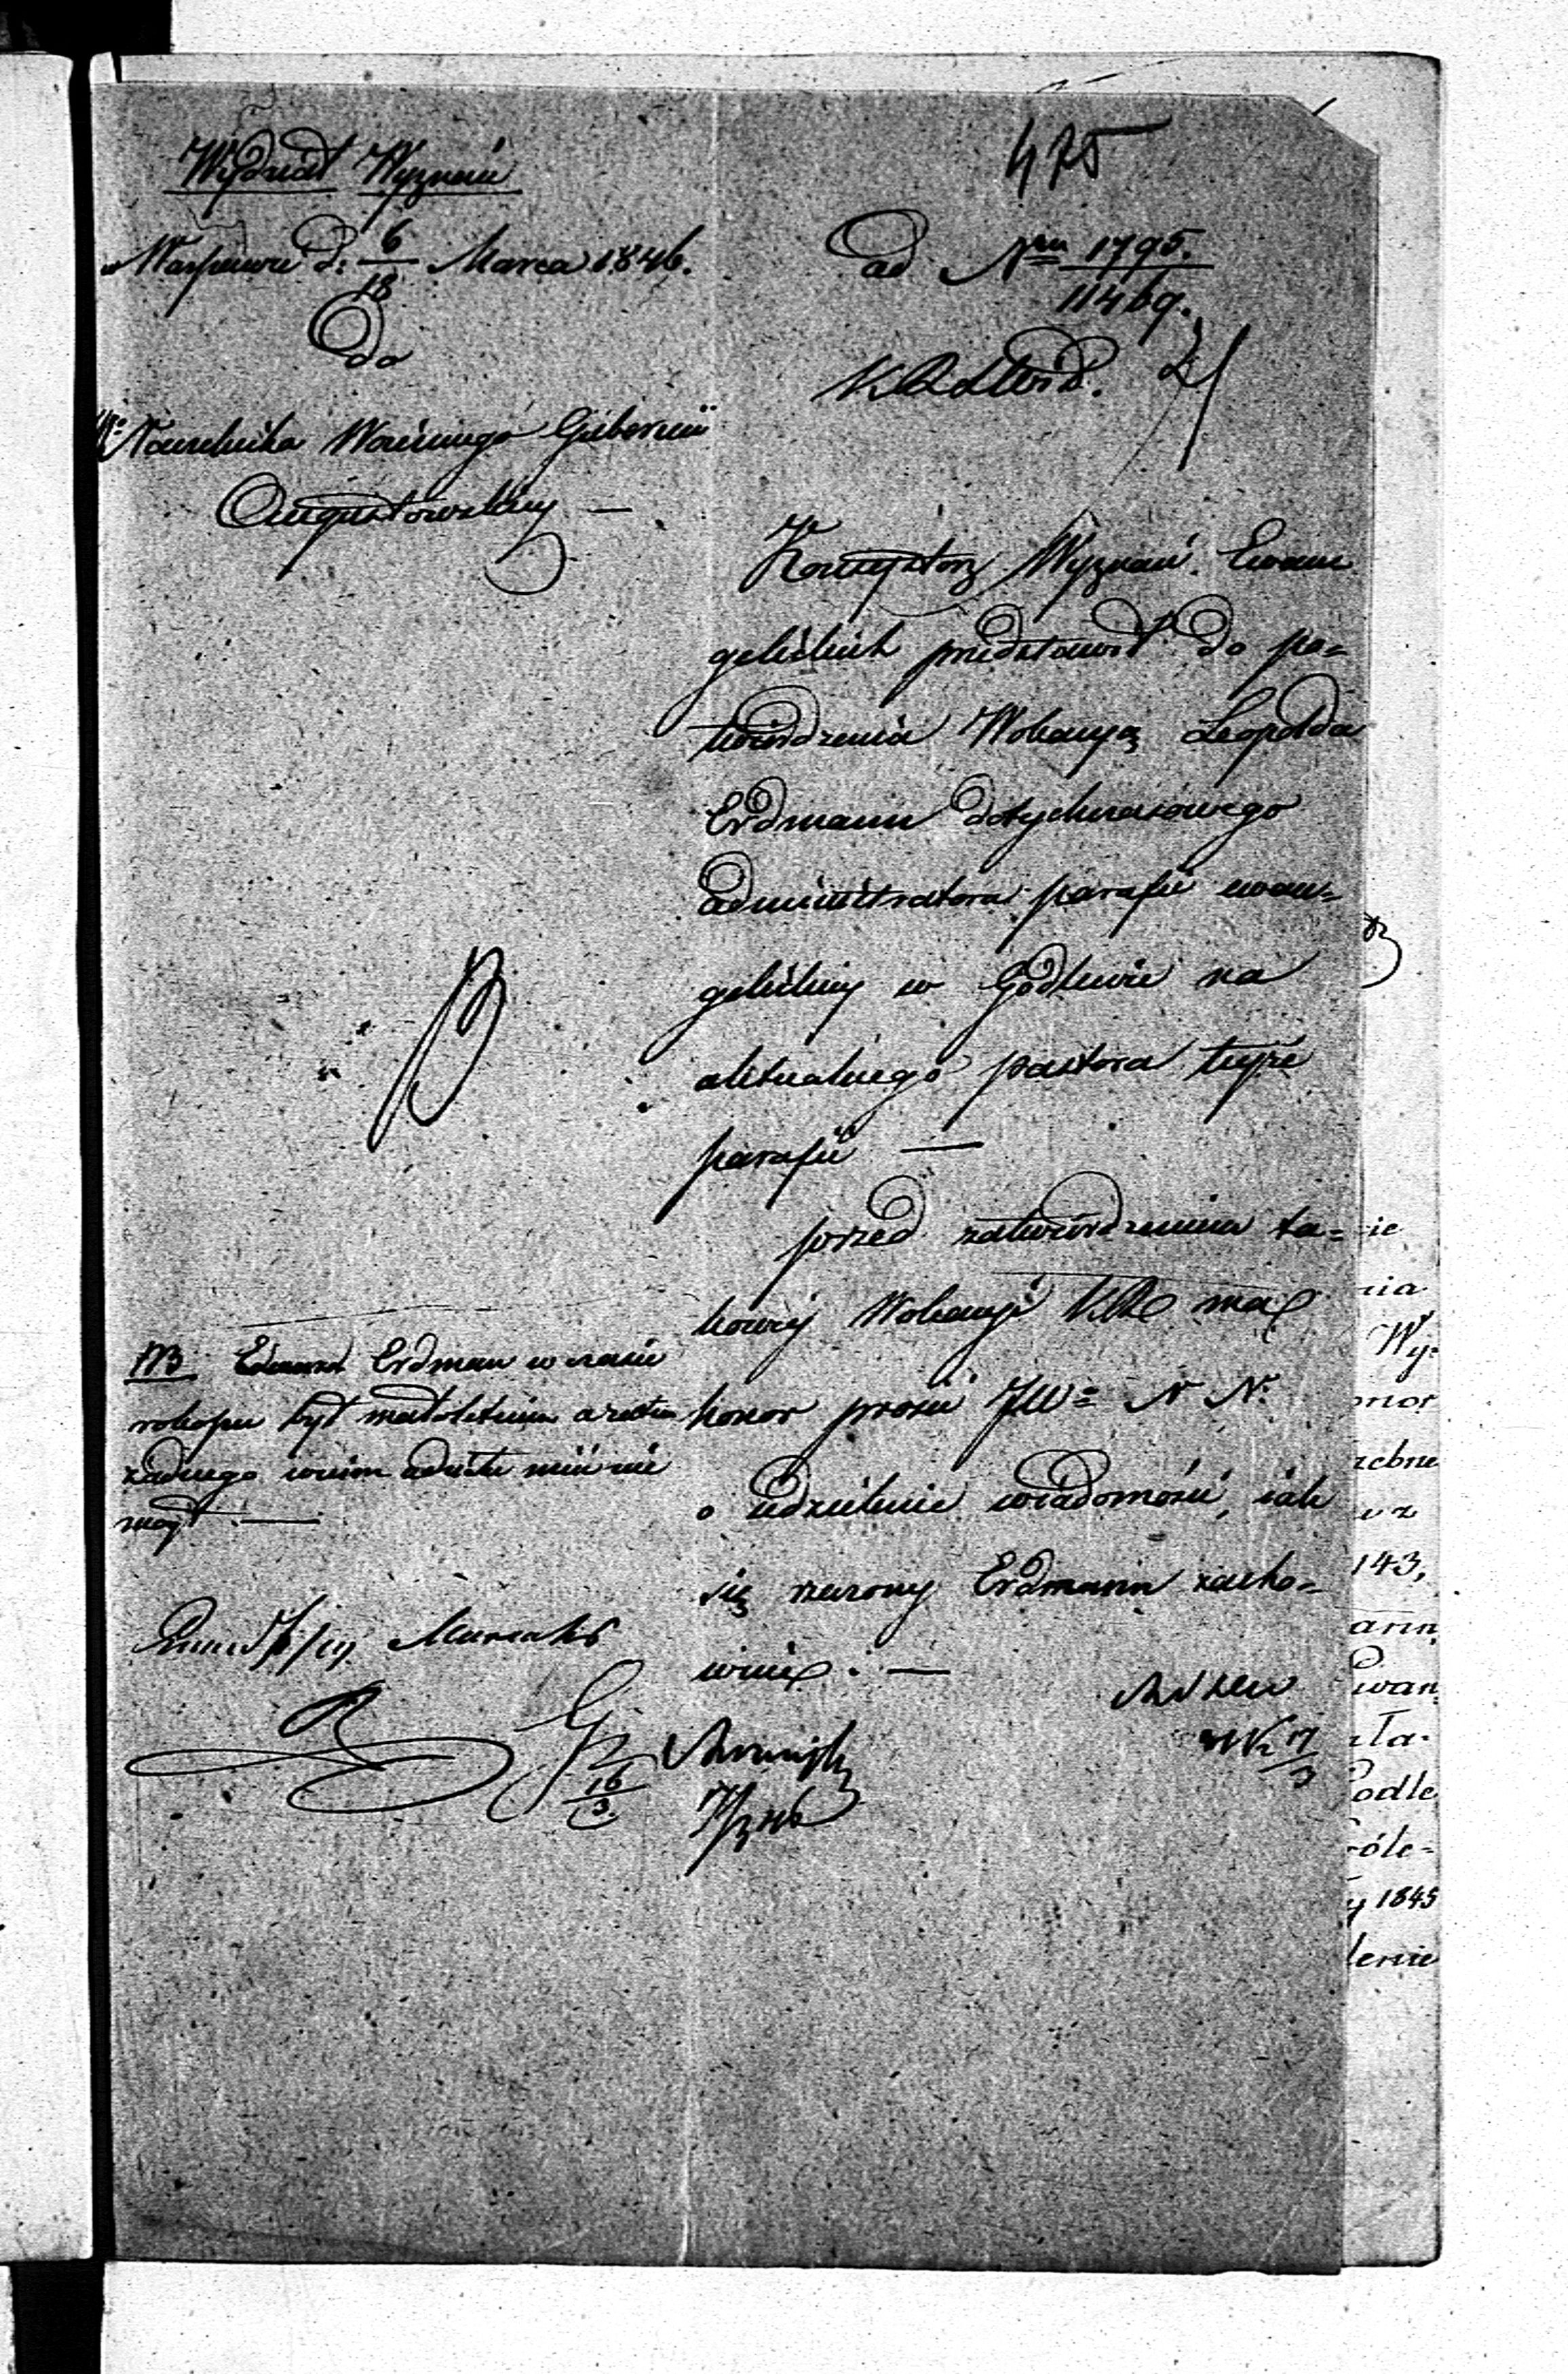 475
Wydział Wyznań
w Warszawie d: 6/18 Marca 1846.
Do
Naczelnika Woiennego Gubernii
Augustowskiey —
ad Nru 1795.
11469.
Konsystorz Wyznań Ewan
gelickich przedstawił do po=
twierdzenia Wokacyą Leopolda
Erdmann dotychczasowego
administratora parafii ewan=
gelickiey w Godlewie na
aktualnego pastora teyże
parafii —
przed zatwierdzeniem ta=
kowey Wokacyi KR ma
honor prosić JW= N N.
o udzielenie wiadomości, iak
się rzeczony Erdmann zacho=
wuie. —
NB Erdman w czasie
rokoszu był małoletnim a zatem
żadnego w nim udziału mieć nie
mógł. —
16/3.
17/3 46
17/3
ie
nia
Wy=
onor
zebne
w z
143,
arm
Ewan
ała=
Godle
óle=
y 1845
lenie